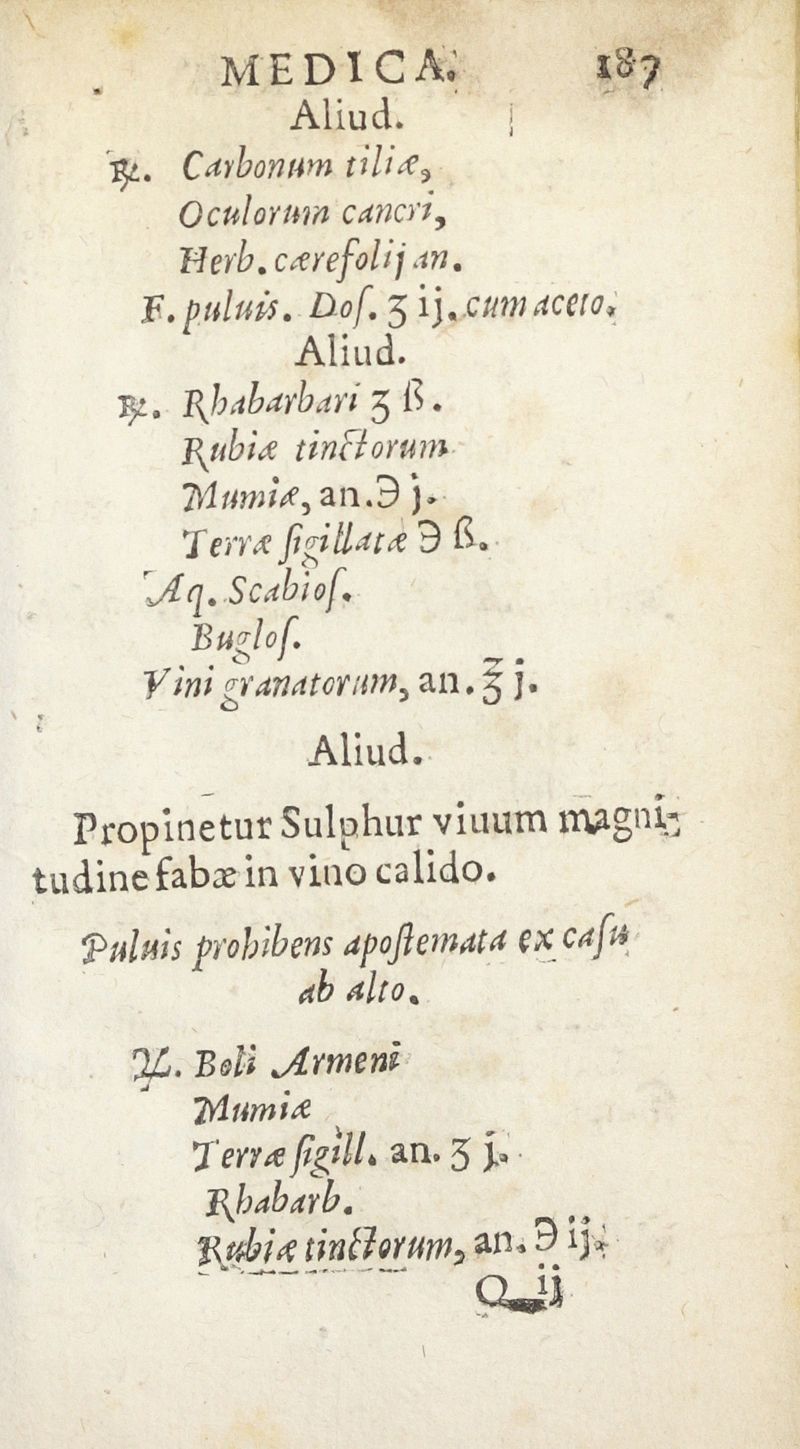 MEDICA. 187
Aliud.
℞. Carbonum tiliæ,
Oculorum cancri,
Herb. cærefolij an.
F. puluis. Doſ. ʒ ij. cum aceto.
Aliud.
℞. Rhabarbari ʒ ß.
Rubiæ tinctorum
Mumiæ, an. ℈ j.
Terræ ſigillatæ ℈ ß.
Aq. Scabioſ.
Bugloſ.
Vini granatorum, an. ℥ j.
Aliud.
Propinetur Sulphur viuum magni-
tudine fabæ in vino calido.
Puluis prohibens apoſtemata ex caſu
ab alto.
℞. Boli Armeni
Mumiæ
Terræ ſigill. an. ʒ j.
Rhabarb.
Rubiæ tinctorum, an. ℈ ij.
Q ij